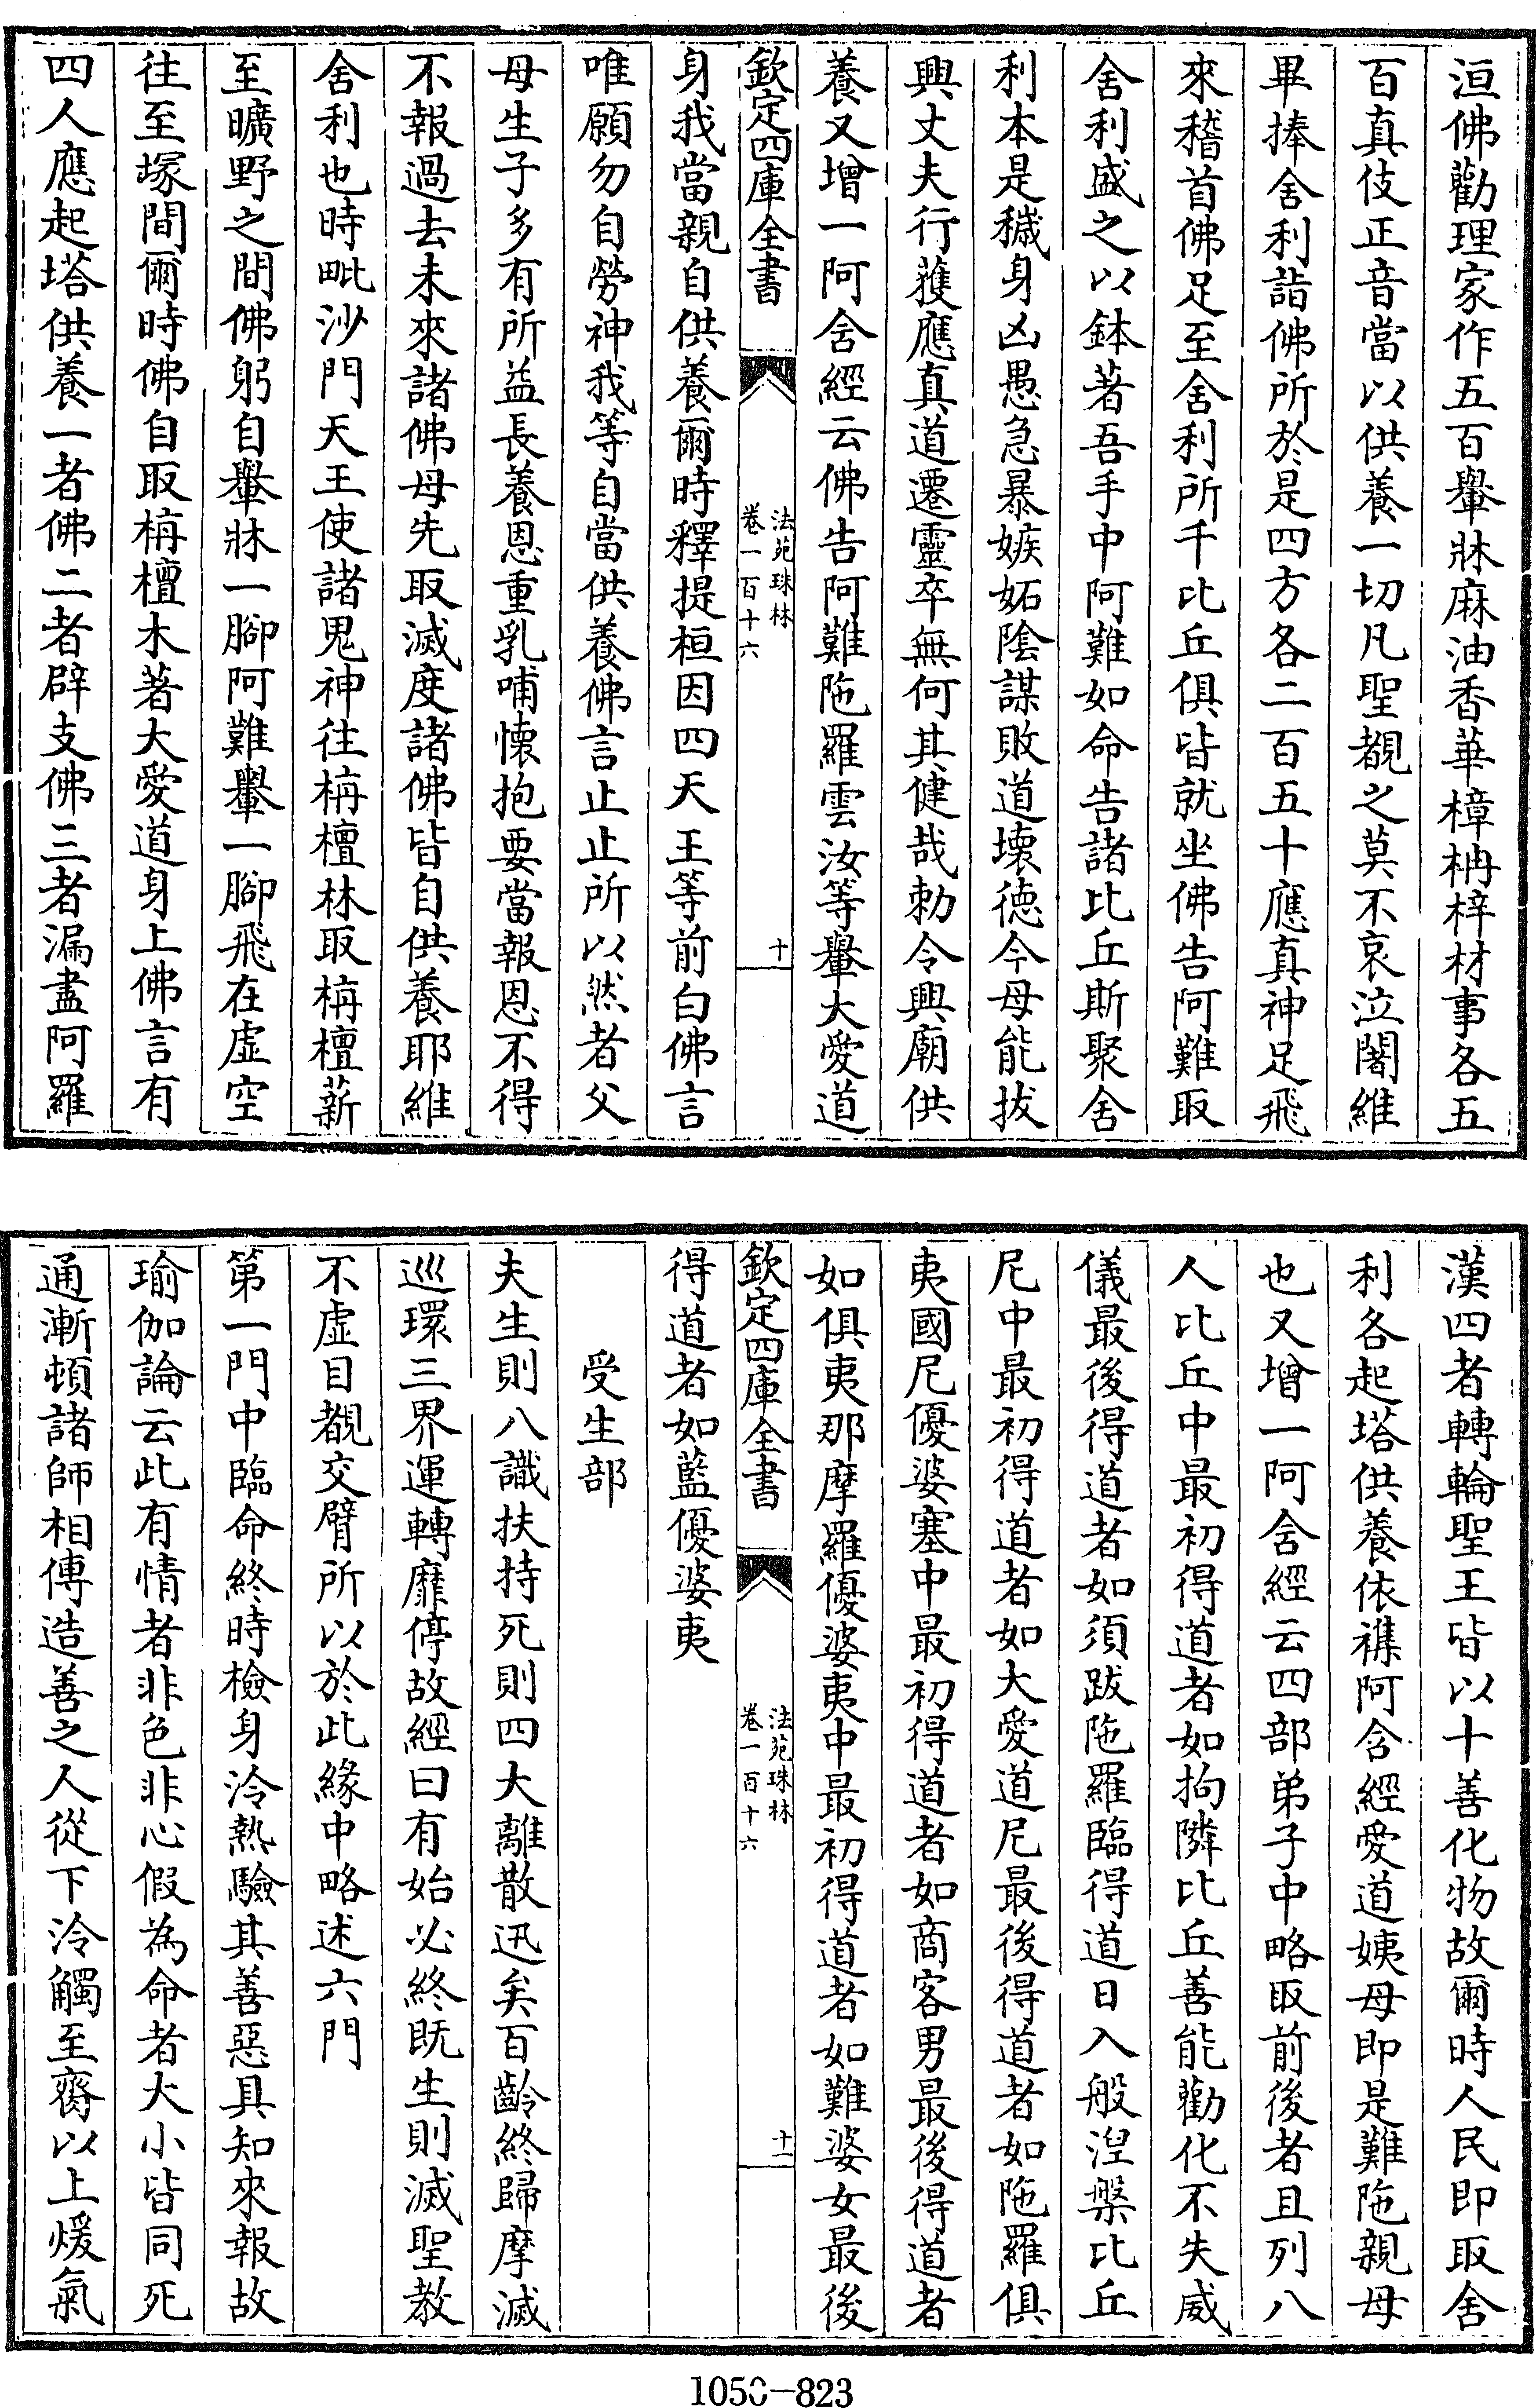 洹佛勸理家作五百轝牀麻油香華樟枏梓材事各五
百真伎正音當以供養一切凡聖覩之莫不哀泣闍維
畢捧舍利詣佛所於是四方各二百五十應真神足飛
來稽首佛足至舍利所千比丘俱皆就坐佛告阿難取
舍利盛之以鉢著吾手中阿難如命告諸比丘斯聚舍
利本是穢身凶愚急暴嫉妬陰謀敗道壊徳今母能拔
興丈夫行獲應真道遷靈卒無何其健哉勅令興廟供
養又增一阿舍經云佛告阿難陁羅雲汝等轝大愛道
欽定四庫全書
法苑珠林
卷一百十六
十
身我當親自供養爾時釋提桓因四天王等前白佛言
唯願勿自勞神我等自當供養佛言止止所以然者父
母生子多有所益長養恩重乳哺懐抱要當報恩不得
不報過去未來諸佛母先取滅度諸佛皆自供養耶維
舍利也時毗沙門天王使諸鬼神往栴檀林取栴檀薪
至曠野之間佛躬自轝牀一腳阿難轝一腳飛在虛空
往至塚間爾時佛自取栴檀木著大愛道身上佛言有
四人應起塔供養一者佛二者辟支佛三者漏盡阿羅
漢四者轉輪聖王皆以十善化物故爾時人民即取舍
利各起塔供養依襍阿含經愛道姨母即是難陁親母
也又增一阿含經云四部弟子中略取前後者且列八
人比丘中最初得道者如拘隣比丘善能勸化不失威
儀最後得道者如須跋陁羅臨得道日入般涅槃比丘
尼中最初得道者如大愛道尼最後得道者如陁羅俱
夷國尼優婆塞中最初得道者如商客男最後得道者
如俱夷那摩羅優婆夷中最初得道者如難婆女最後
欽定四庫全書
法苑珠林
卷一百十六
十一
得道者如藍優婆夷
受生部
夫生則八識扶持死則四大離散迅矣百齡終歸摩滅
巡環三界運轉靡停故經曰有始必終既生則滅聖教
不虛目覩交臂所以於此緣中略述六門
第一門中臨命終時檢身冷熱驗其善惡具知來報故
瑜伽論云此有情者非色非心假為命者大小皆同死
通漸頓諸師相傳造善之人從下冷觸至齊以上煖氣
1050-823